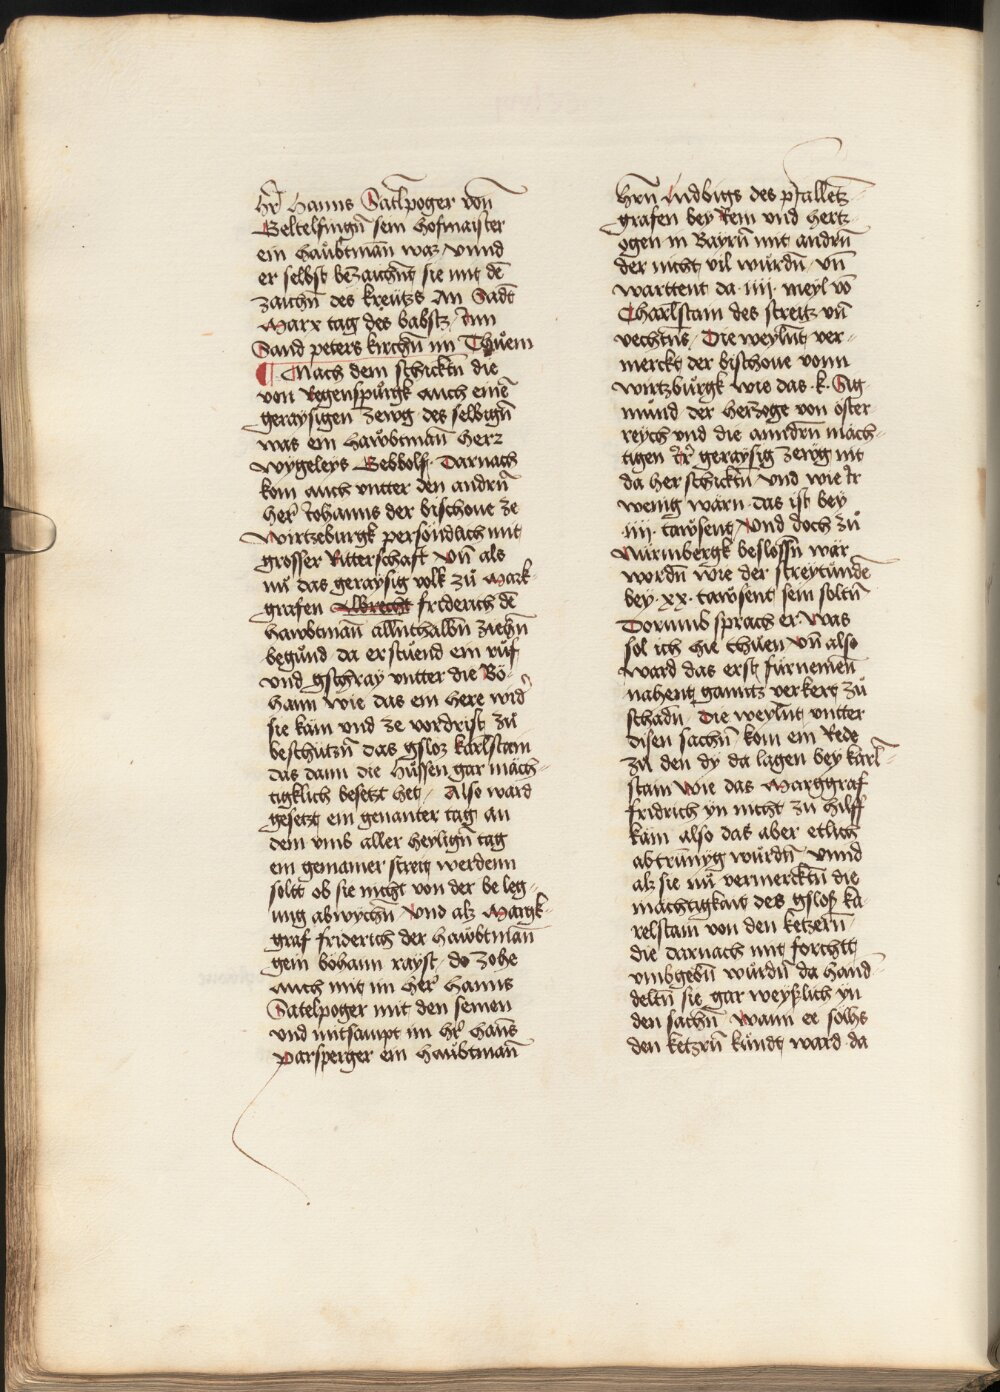 hr̄ Hanns Satlpoger von
Geltelfingn̄ sein hofmaister
ein haubtman̄ waz / vnnd
er selbst bezaichnt sie mit dē
zaichn̄ des kreutzs An Sadt
Marx tag des babstz / Inn
Sand peters kirchn̄ im Thuem
¶ Nach dem schicktn̄ die
von Regenspurgk auch einē
geraysigen zewg des selbign̄
was ein hawbtman̄ herz
Wygeleys Gebbolf · Darnach
kom auch vntter den andrn̄
her Johanns der bischoue ze
Wirtzeburgk personndlich mit
grosser Ritterschaft Vn̄ als
nu das geraysig volk zu Mark-
grafen Albrecht friderich dē
hawbtman̄ allnthalbn̄ ziehn̄
begund · da erstuend ein ruf
vnd gschray vntter die Bö-
haim wie das ein here wid̄
sie kam vnd ze vordrist zu
beschutzn̄ das gsloz karlstain
das dann die hussen gar mäch-
tigklich besetzt het / Also ward
gesetzt ein genanter tag an
dem vmb aller heylign̄ tag
ein gemainer streit werdenn
solt ob sie nicht von der beleg-
ung abwychn̄ / Vnd alz Margk-
graf friderich der hawbtman̄
gein böhaim rayst · do zohe
auch mit im her Hanns
Satelpoger mit den seinen
vnd mitsampt im hr̄ Hans
Parsperger ein haubtman̄
hrn̄ Ludbigs des pfalletz-
grafen bey Rein vnd hertz-
ogen in Bayrn̄ mit andrn̄
der nicht vil wurdn̄ / vn̄
warttent da · iiii · meyl vō
Charlstain des streitz vn̄
vechtns / Die weylnt ver-
merckt der bischoue vonn
Wirtzburgk wie das · k · Sig-
mund der herzoge von öster-
reych vnd die anndrn̄ mäch-
tigen Ir geraysig zewg nit
da her schicktn̄ / vnd wie Ir
wenig warn · das ist bey
· iiii · tawsent / Vnd doch zu
Nurmbergk beslossn̄ wär
wordn̄ wie der streytundē
bey · xx · tawsent sein soltn̄
Dorumb sprach er · Was
sol ich hie thuen Vn̄ also
ward das erst furnemen̄
nahent gantz verkert zu
schadn̄ / Die weylnt vntter
disen sachn̄ kom ein Rede
zu den dy da lagen bey karl-
stain Wie das Marggraf
fridrich yn nicht zu hilff
kam also das aber etlich
abtrunyg wurdn̄ / vnnd
alz sie nu vermercktn̄ die
mächtigkait des gsloß ka-
relstain von den ketzern̄
die darnach mit forchtt
vmbgebn̄ wurdn̄ da hand-
deltn̄ sie gar weyßlich yn
den sachn̄ Wann ee solhs
den ketzrn̄ kundt ward · da